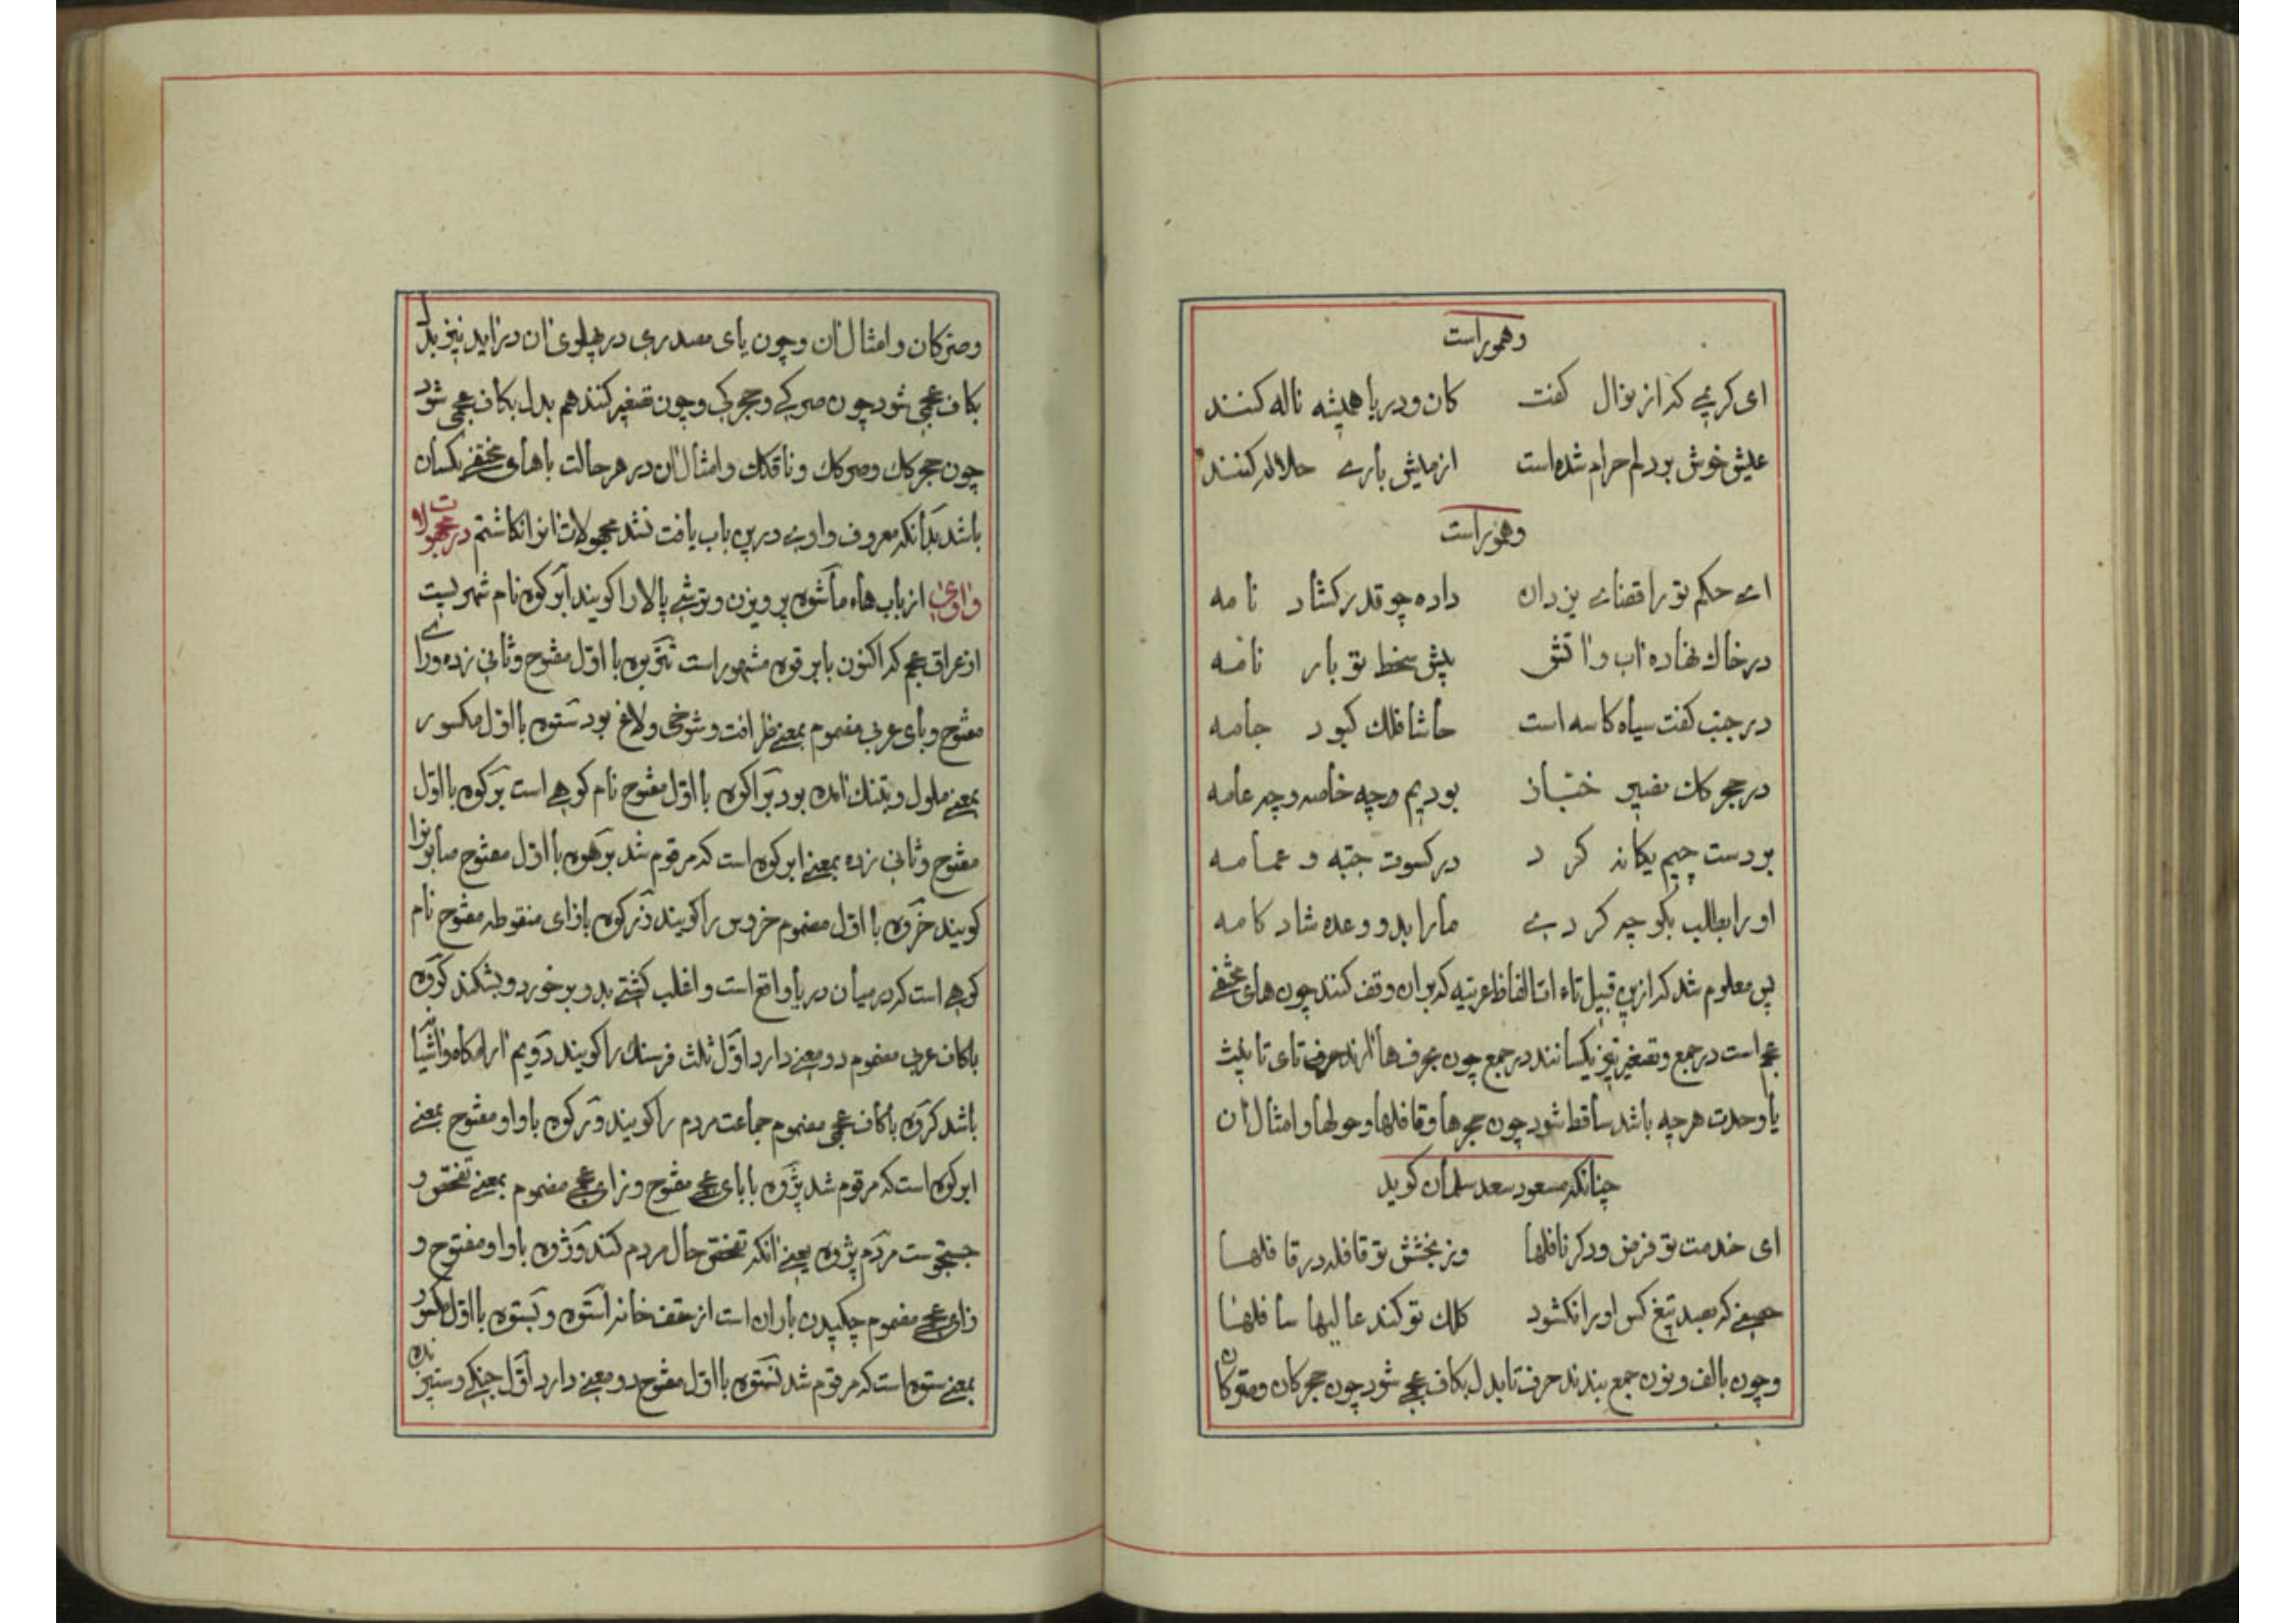 وهموراست
ای کریمی که از نوال کفت کان و دریا همیشه ناله کنند
عیش خوش بود لم حرام شده است از میش باری حلاله کنند
وهموراست
ای حکم تو را قضای یزدان داده چو قدر کشاد نامه
در خاک نهاده آب و آتش پیش سخط تو بار نامه
در جنب کفت سیاه کاسه است حاشا فلک کبود جامه
در حجرکان نفیر ختباز بودیم وچه خاصه وچه عامه
بودست حیم یکانه کر د در کسوت جبّه و عمامه
او را بطلب بکو چه کردی ما را بدو وعده شاد کامه
پس معلوم شد که ازین قبیل تاء اتا الفاظ عربیّه که بران وقف کنند چون های مختفی
عجم است در جمع و تصغیر نیز یکسانند در جمع چون بحرف ها آرند حرف تای تا نیث
یا وحدت هر چه باشد ساقط شود چون حجرها و قافلها و حولها و امثال آن
چنانکه مسعود سعد سلمان کوید
ای خدمت تو فرض و دکر نافلها وز بخشش تو قافله در قافلها
حصنی که بصد تیغ کس او را نکشود کلک تو کند عالیها سافلها
و چون بالف و نون جمع بندند حرف تا بدل بکاف عجمی شود چون حجرکان و متوکان
وصرکان و امثال آن و چون یای مصدری در پهلوی آن در آید نیز بدل
بکاف عجمی شود چون صرکی و حجرکی و چون تصغیر کنند هم بدل بکاف عجمی شود
چون حجرکک وصرکک و ناقکک و امثال آن در هر حالت با های مختفی یکسان
باشد بدانکه معروف واوی درین باب یافت نشد مجهولات آنرا نکاشتم در مجهولات
واوی از باب هاء ماشوه پرویزن و ترشی پالا را کویند ابرکوه نام شهریست
از عراق عجم که اکنون بابرقوه مشهور است تنوبوه با اوّل مفتوح و ثانی زده ورای
مفتوح و بای عربی مضموم بمعنی ظرافت و شوخی و لاغ بود ستوه با اوّل مکسور
بمعنی ملول و بتنک آمده بود براکوه با اوّل مفتوح نام کوهی است برکوه با اوّل
مفتوح و ثانی زده بمعنی ابرکوه است که مرقوم شد برهوه با اوّل مفتوح صابونرا
کویند خروه با اوّل مضموم خروس را کویند زرکوه بازای منقوطه مفتوح نام
کوهی است که در میان دریا واقع است و اغلب کشتی بدو بر خورد و بشکند کروه
باکاف عربی مضموم دو معنی دارد اوّل ثلث فرسنک را کویند دویم آرامکاه و آشیانه
باشد کروه باکاف عجمی مضموم جماعت مردم را کویند ورکوه باواو مفتوح بمعنی
ابرکوه است که مرقوم شد پژوه با بای عجمی مفتوح و زای عجمی مضموم بمعنی تفحّص و
جستجوست مردم پژوه یعنی آنکه تفحّص حال مردم کند وژوه باواو مفتوح و
زای عجمی مضموم چکیدن باران است از سقف خانه استوه و بستوه با اوّل مکسور
بمعنی ستوه است که مرقوم شد نستوه با اوّل مفتوح دو معنی دارد اوّل جنکی و ستیزنده